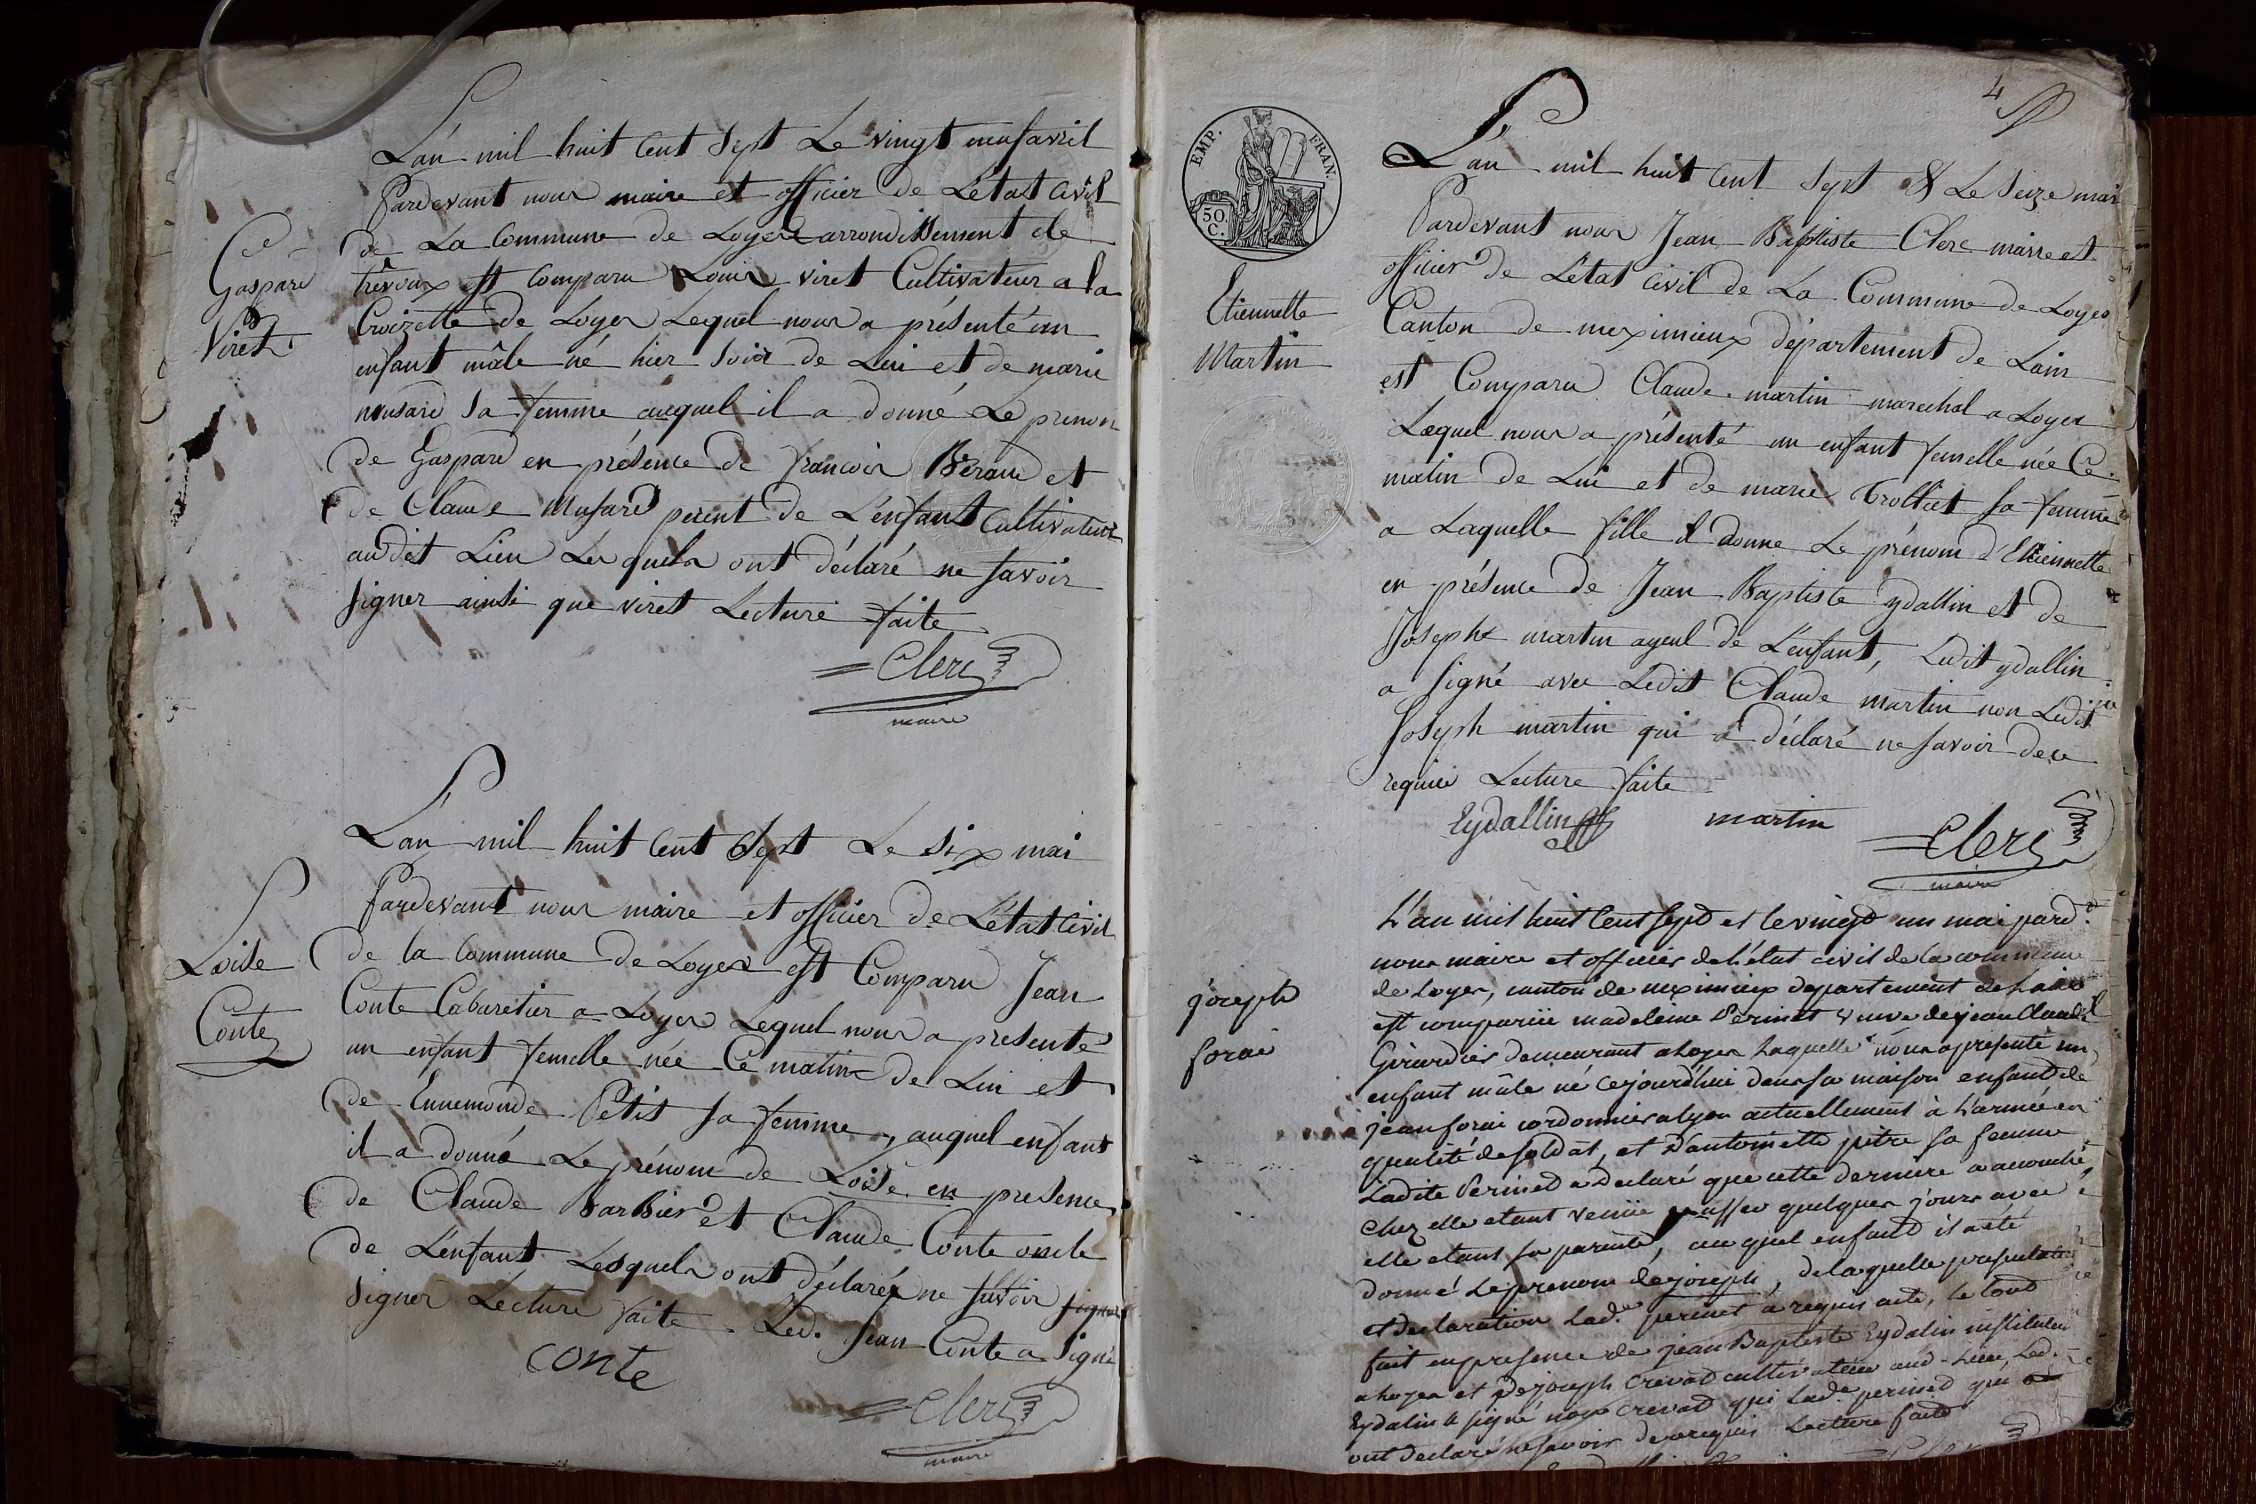 L'an mil huit Cent Sept Le vingt neuf avril
Pardevant nous maire et officier de L'état Civil
de La Commune de Loyes arrondissement de
trévoux est Comparu Louis viret Cultivateur a la
Croizette de Loyes Lequel nous a présenté un
enfant mâle né hier Soir de Lui et de marie
musard Sa femme auquel il a donné Le prenom
de Gaspard en présence de francois Béraud et
de Claude Musard parent de L'enfant Cultivateurs
audit Lieu Lesquels ont déclaré ne Savoir
signer ainsi que viret Lecture faite
Clerc
maire
Gaspard
Viret
L'an mil huit Cent Sept Le Six mai
Pardevant nous maire et officier de L'état Civil
de la Commune de Loyes est Comparu Jean
Conte Cabaretier a Loyes Lequel nous a présenté
un enfant femelle née Ce matin de Lui et
de Ennemonde Petit Sa femme, auquel enfant
il a donné Le prénom de Loise en presence
de Claude Barbier et Claude Conte oncle
de L'enfant Lesquels ont déclarés ne Savoir signer
Signer Lecture faite Led. Jean Conte a Signé
conte
Clerc
maire
Loise
Conte
4
EMP. FRAN.
50 C.
L'an mil huit Cent Sept & Le Seize mai
Pardevant nous Jean Baptiste Clerc maire et
officier de L'état Civil de La Commune de Loyes
Canton de meximieux département de Lain
est Comparu Claude martin marechal a Loyes
Lequel nous a présenté un enfant femelle née Ce
matin de Lui et de marie Trolliet Sa femme
a Laquelle fille il donne Le prénom d'Etiennette
en présence de Jean Baptiste ydallin et de
Joseph martin ayeul de L'enfant, Ledit ydallin
a Signé avec Ledit Claude martin non Ledit
Joseph martin qui a déclaré ne Savoir de ce
requis Lecture faite
Eydallin martin Clerc
maire
Etiennette
Martin
L'an mil huit Cent Sept et le vingt un mai pard.t
nous maire et officier de l'état civil de la commune
de Loyes, canton de meximieux departement de Lain
est comparüe madeleine Perinet veuve de jean Claude
Girardier demeurant a Loyes Laquelle nous a présenté un
enfant mâle né cejourd'hui dans sa maison enfant de
jean forai cordonnier a lyon actuellement à L'armée en
qualité de soldat, et d'antoinette pitre sa femme
Ladite Perinet a déclaré que cette derniere a accouché
chez elle etant venüe passer quelques jours avec
elle etant sa parente, au quel enfant il a été
donné Le prenom de joseph, de laquelle presentation
et declaration Lad.e perinet a requis acte, le tout
fait en presence de jean Baptiste Eydalin instituteur
a Loyes et de joseph Crevat cultivateur aud. Lieu, Led.
Eydalin a signé non Crevat qui Lad.e perinet qui
ont declaré ne savoir de ce requis Lecture faite
joseph
forai